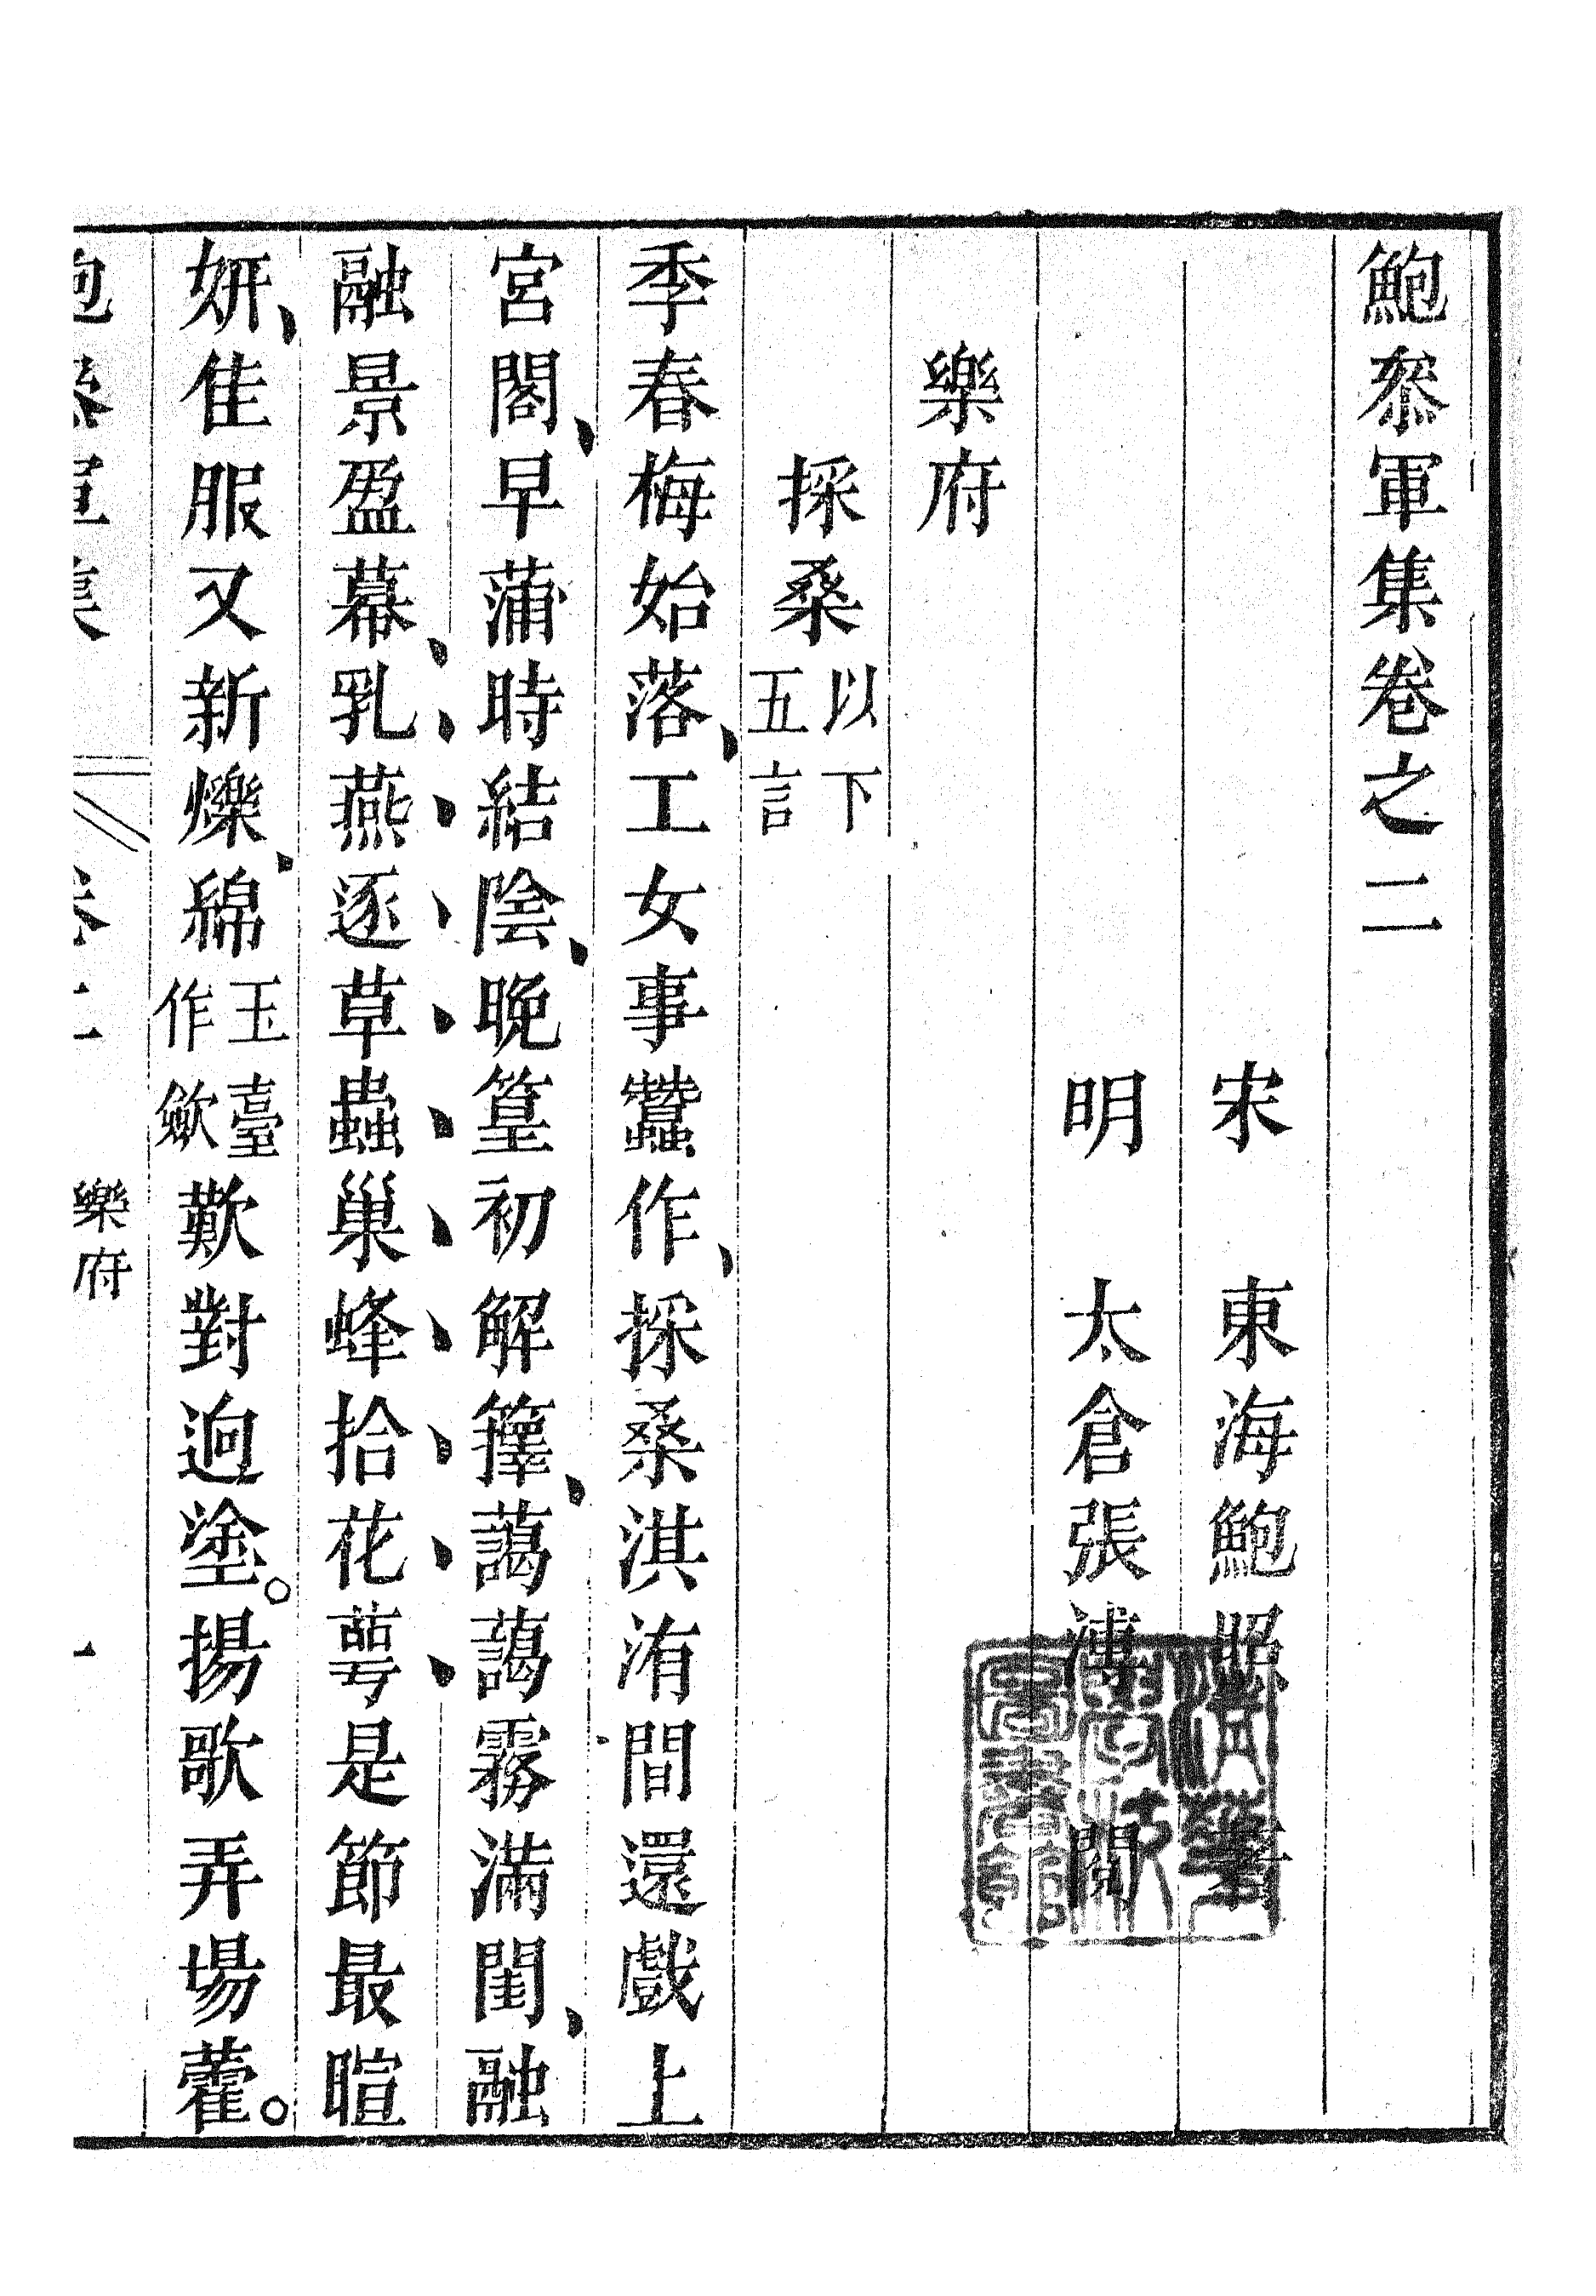 鮑叅軍集卷之二
宋　東海鮑照著
明　太倉張溥閱
樂府
採桑以下五言
季春梅始落工女事蠶作採桑淇洧間還戲上
宮閣早蒲時結陰晚篁初解籜藹藹霧滿閨融
融景盈幕乳燕逐草蟲巢蜂拾花萼是節最暄
妍佳服又新爍綿玉臺作斂歎對逈塗揚歌弄場藿
鮑叅軍集　卷二　樂府　一